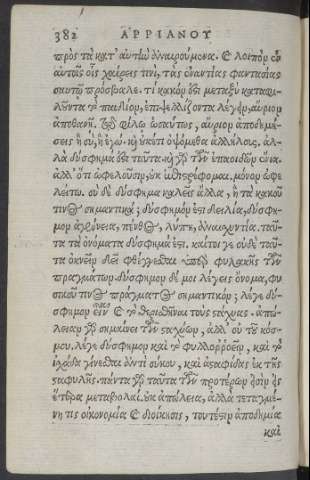 382 ΑΡΡΙΑΝΟΥ
πρὸς τὰ κατ' αὐτὼ διναιρούμενα. & λοιπὸν ἐν
αὐτοῖς οἷς χαίρεις τινὶ, τὰς ἐναντίας φαντασίας
σαυτῷ πρόσβαλε. τί κακόν ἐστι μεταξὺ καταφι-
λοῦντα τὸ παιδίον, ἐπιψελλίζοντα λέγειν, αὔριον
ἀποθανῇ. τῷ φίλῳ ὡσαύτως, αὔριον ἀποδημή-
σεις ἢ σὺ, ἢ ἐγὼ. καὶ οὐκέτι ὀψόμεθα ἀλλήλους. ἀλ-
λὰ δύσφημά ἐστι ταῦτα. καὶ γὰρ τῶν ἐπαοιδῶν ἔνια.
ἀλλ' ὅτι ὠφελοῦσιν, οὐκ ἐπιστρέφομαι. μόνον ὠφε
λείτω. σὺ δὲ δύσφημα καλεῖς ἄλλα, ἢ τὰ κακοῦ
τινος σημαντικά; δύσφημόν ἐστι δειλία, δύσφη-
μον ἀγέννεια, πένθος, λύπη, ἀναισχυντία. ταῦ-
τα τὰ ὀνόματα δύσφημά ἐστι. καίτοι γε οὐδὲ ταῦ-
τα ὀκνεῖν δεῖ φθέγγεσθαι ὑπὲρ φυλακῆς τῶν
πραγμάτων. δύσφημον δέ μοι λέγεις ὄνομα, φυ
σικοῦ τινος πράγματος σημαντικόν; λέγε δύ-
σφημον εἶναι & τὸ θερισθῆναι τοὺς στάχυας. ἀπώ-
λειαν γὰρ σημαίνει τῶν σταχύων, ἀλλ' οὐ τοῦ κόσ-
μου. λέγε δύσφημον καὶ τὸ φυλλοῤῥοεῖν, καὶ τὸ
ἰσχάδα γίνεσθαι ἀντὶ σύκου, καὶ ἀσταφίδας ἐκ τῆς
σταφυλῆς. πάντα γὰρ ταῦτα τῶν προτέρων εἰσὶν εἰς
ἕτερα μεταβολαί. οὐκ ἀπώλεια, ἀλλὰ τεταγμέ-
νη τις οἰκονομία & διοίκησις, τουτέστιν ἀποδημία
καὶ